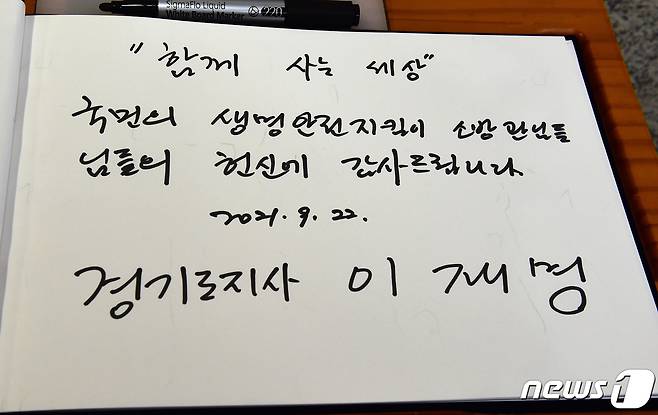 SigmaFlo Liquid
White Board Marker
220
"함께 사는 세상"
국민의 생명안전지킴이 소방관님들
님들의 헌신에 감사드립니다
2021. 9. 22.
경기도지사 이재명
news1